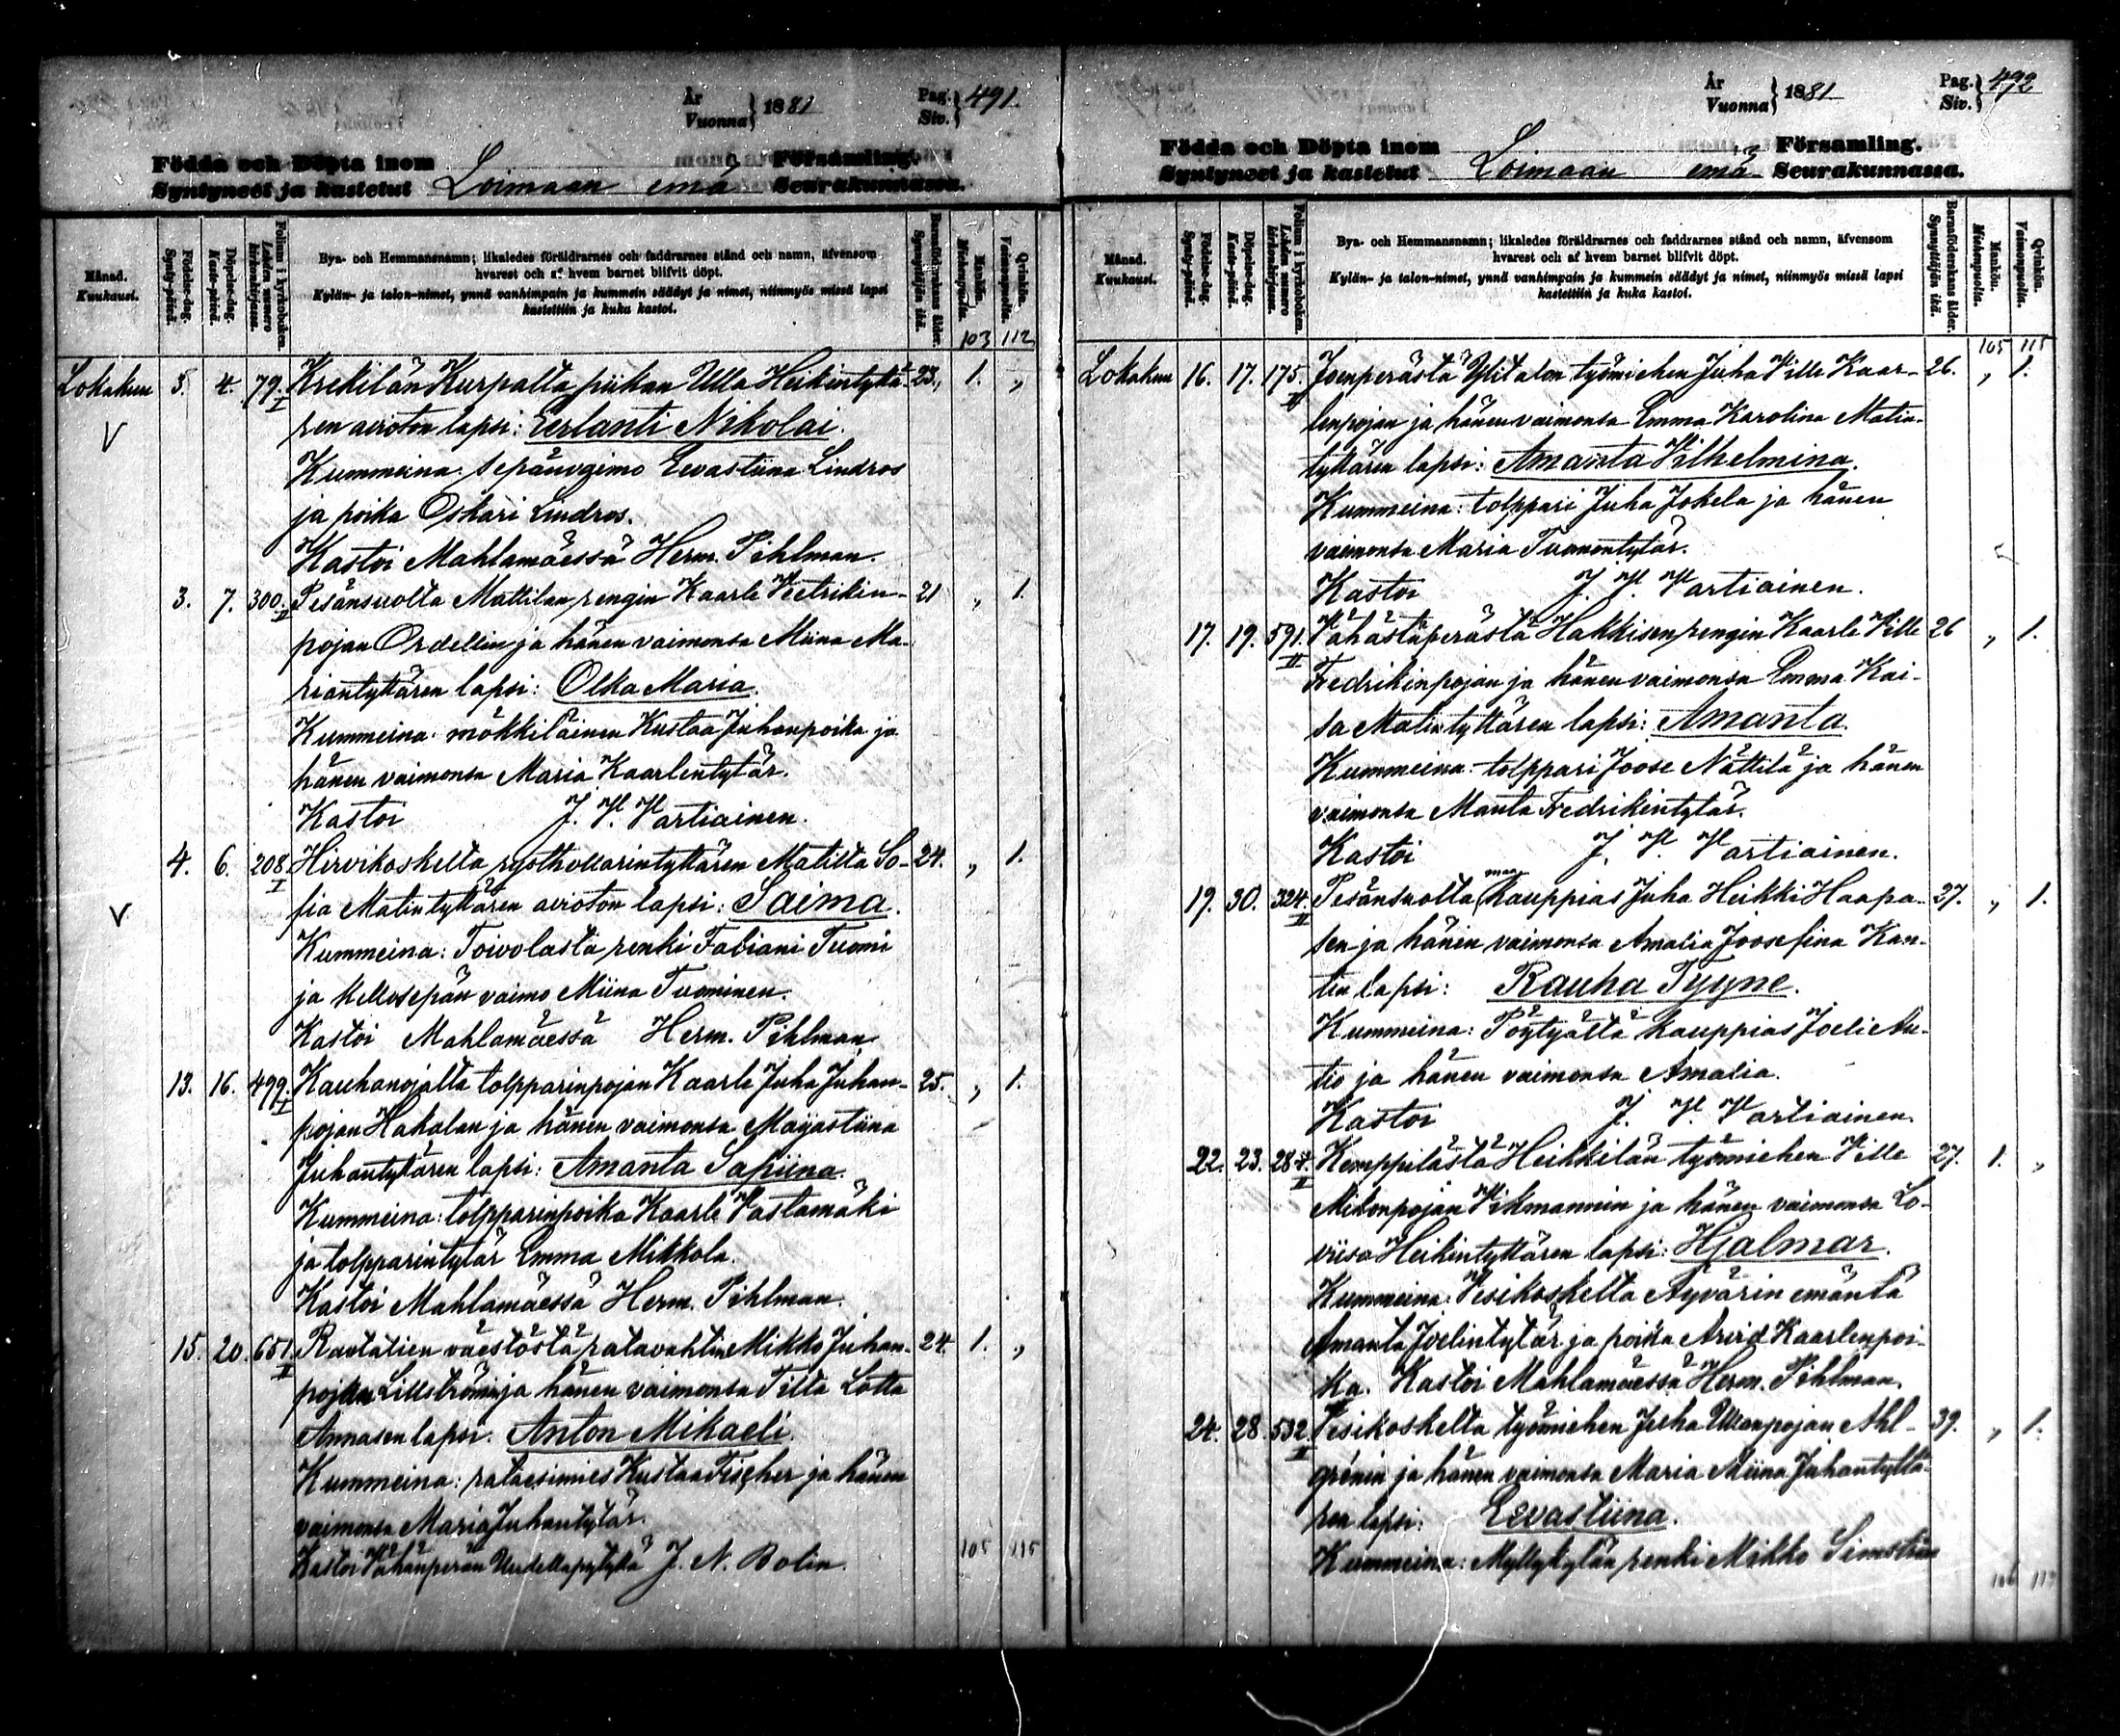 År
Vuonna } 1881
Pag.
Siv. } 491.
Födda och Döpta inom Församling.
Syntyneet ja kastetut Loimaan emä Seurakunnassa.
Månad.
Kuukausi.
Födelse-dag.
Synty-päivä.
Döpelse-dag.
Kaste-päivä.
Folium i kyrkoboken.
Lehden numero kirkonkirjassa.
Bya- och Hemmansnamn; likaledes föräldrarnes och faddrarnes stånd och namn, äfvensom
hvarest och af hvem barnet blifvit döpt.
Kylän- ja talon-nimet, ynnä vanhimpain ja kummein säädyt ja nimet, niinmyös missä lapsi
kastettiin ja kuka kastoi.
Barnaföderskans ålder.
Synnyttäjän ikä.
Mankön.
Miehenpuolta.
Qvinkön.
Vaimonpuolta.
103 112
Lokakuu 3. 4. 79. I Krekilän Kurpalta piikan Ulla Heikintyttä- 23. 1. „
ren avioton lapsi: Eerlanti Nikolai.
V
Kummeina: Sepänvaimo Eevastiina Lindros
ja poika Oskari Lindros.
Kastoi Mahlamäessä Herm. Pihlman.
3. 7. 300. II Pesänsuolta Mattilan rengin Kaarle Vetrikin- 21 „ 1.
pojan Ordellin ja hänen vaimonsa Miina Ma-
riantyttären lapsi: Olka Maria.
Kummeina: mökkiläinen Kustaa Juhanpoika ja
hänen vaimonsa Maria Kaarlentytär.
Kastoi J. V. Vartiainen.
4. 6. 208 I Hirvikoskelta ryöthollarintyttären Matilta So- 24. „ 1.
fia Matintyttären avioton lapsi: Saima.
V
Kummeina: Toivolasta renki Fabiani Tuomi
ja kellosepän vaimo Miina Tuominen.
Kastoi Mahlamäessä Herm. Pihlman
13. 16. 499. I Kauhanojalta tolpparinpojan Kaarle Juha Juhan- 25. „ 1.
pojan Hakalan ja hänen vaimonsa Majastiina
Juhantyttären lapsi: Amanta Sapiina.
Kummeina: tolpparinpoika Kaarle Vastamäki
ja tolpparintytär Emma Mikkola.
Kastoi Mahlamäessä Herm. Pihlman.
15. 20. 651. II Rautatien väestöstä ratavahtin Mikko Juhan- 24. 1. „
pojan Lillströmin ja hänen vaimonsa Tilta Lotta
Annasen lapsi: Anton Mikaeli.
Kummeina: rataesimies Kustaa Fischer ja hänen
vaimonsa Maria Juhantytär.
Kastoi Vähänperän J. N. Bolin.
105 115
År
Vuonna } 1881
Pag.
Siv. } 492
Födda och Döpta inom Församling.
Syntyneet ja kastetut Loimaan emä Seurakunnassa.
Månad.
Kuukausi.
Födelse-dag.
Synty-päivä.
Döpelse-dag.
Kaste-päivä.
Folium i kyrkoboken.
Lehden numero kirkonkirjassa.
Bya- och Hemmansnamn; likaledes föräldrarnes och faddrarnes stånd och namn, äfvensom
hvarest och af hvem barnet blifvit döpt.
Kylän- ja talon-nimet, ynnä vanhimpain ja kummein säädyt ja nimet, niinmyös missä lapsi
kastettiin ja kuka kastoi.
Barnaföderskans ålder.
Synnyttäjän ikä.
Mankön.
Miehenpuolta.
Qvinkön.
Vaimonpuolta.
105 115
Lokakuu 16. 17. 175. II Joenperästä Ylitalon työmiehen Juha Ville Kaar- 26. „ 1.
lenpojan ja hänen vaimonsa Emma Karolina Matin-
tyttären lapsi: Amanta Vilhelmina.
Kummeina: tolppari Juha Jokela ja hänen
vaimonsa Maria Tuomontytär.
Kastoi J. V. Vartiainen.
17. 19. 591. II Vähästäperästä Hakkisen rengin Kaarle Ville 26 „ 1.
Fredrikinpojan ja hänen vaimonsa Emma Kai-
sa Matintyttären lapsi: Amanta.
Kummeina: tolppari Joose Nättilä ja hänen
vaimonsa Manta Fredrikintytär.
Kastoi J. V. Vartiainen.
19. 30. 324. II Pesänsuolta maakauppias Juha Heikki Haapa- 27. „ 1.
sen ja hänen vaimonsa Amalia Joosefina Kan-
tin lapsi: Rauha Tyyne.
Kummeina: Pöytyältä kauppias Joeli Au-
tio ja hänen vaimonsa Amalia.
Kastoi J. V. Vartiainen.
22. 23. 284. II Kemppilästä Heikkilän työmiehen Ville 27. 1. „
Mikonpojan Vikmannin ja hänen vaimonsa Lo-
viisa Heikintyttären lapsi: Hjalmar.
Kummeina: Vesikoskelta Äyvärin emäntä
Amanta Joelintytär ja poika Arvid Kaarlenpoi-
ka. Kastoi Mahlamäessä Herm. Pihlman.
24. 28. 532 II Vesikoskelta työmiehen Juha Ullanpojan Ahl- 39. „ 1.
grénin ja hänen vaimonsa Maria Miina Juhantyttä-
ren lapsi: Eevastiina.
Kummeina: Myllykylän renki Mikko
106 119